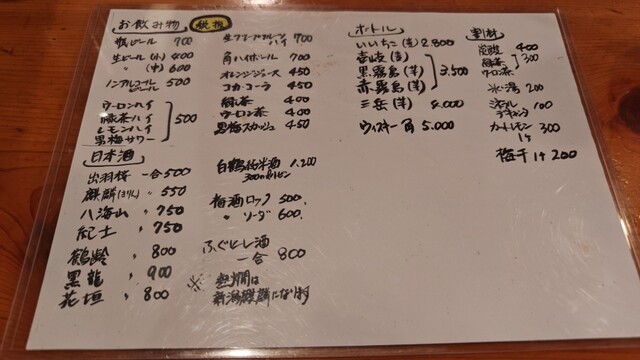 お飲み物 税抜
瓶ビール 700
生ビール(小) 400
〃 (中) 600
ノンアルコールビール 500
ウーロンハイ
緑茶ハイ
レモンハイ
黒梅サワー
500
生グレープフルーツハイ 700
角ハイボール 700
オレンジジュース 450
コカ・コーラ 450
緑茶 400
ウーロン茶 400
黒梅スカッシュ 450
日本酒
出羽桜 一合 500
麒麟(きりん) 〃 550
八海山 〃 750
紀土 〃 750
鶴齢 〃 800
黒龍 〃 900
花垣 〃 800
白鶴純米酒 1,200
300ml
梅酒ロック 500.
〃 ソーダ 600.
ふぐヒレ酒
一合 800
※ 熱燗は
新潟麒麟になります
ボトル
いいちこ(麦) 2.800
壱岐(麦)
黒霧島(芋)
赤霧島(芋)
3,500
三岳(芋) 4.000
ウィスキー角 5.000
割材
炭酸 400
緑茶
ウーロン茶
300
氷・湯 200
ミネラル 100
カットレモン 300
1ケ
梅干1ケ 200